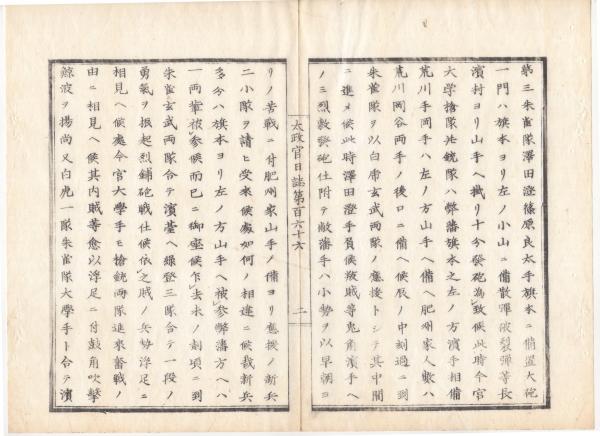 第三朱雀隊澤田澄篠原良太手旗本ニ備置大砲
一門ハ旗本ヨリ左ノ小山ニ備散彈破裂彈等長
濱村ヨリ山手ヘ掛リ十分發砲為致候此時令官
大学槍隊此銃隊ハ弊藩旗本之左ノ方濱手相備
荒川手岡手ハ左ノ方山手ヘ備ヘ肥州家人数ハ
荒川岡谷両手ノ後口ニ備ヘ候辰ノ中刻過ニ到
朱雀隊ヲ以白帝玄武両隊ノ應接トシテ其中間
ニ進メ候此時澤田澄手負候故賊等鬼角濱手ヘ
ノミ烈敷發砲仕附テ敵藩手ハ小勢ヲ以早朝ヨ
太政官日誌第百六十六
二
リノ苦戦ニ付肥州家山手ノ備ヨリ應援ノ新兵
二小隊ヲ請ヒ受来候處如何ノ相違ニ候哉新兵
多分ハ旗本ヨリ左ノ方山手ヘ被参弊藩方ヘハ
一両輩被参候而已ニ御座候乍去未ノ刻頃ニ到
朱雀玄武両隊合テ濱臺ヘ繰登三隊合テ一段ノ
勇氣ヲ振起烈鋪砲戦仕候依之賊ノ兵勢浮足ニ
相見ヘ候處令官大學手モ槍銃両隊進来奮戦ノ
由ニ相見ヘ候其内賊等愈以浮足ニ付鼓角吹撃
鯨波ヲ揚尚又白虎一隊朱雀隊大學手ト合テ濱